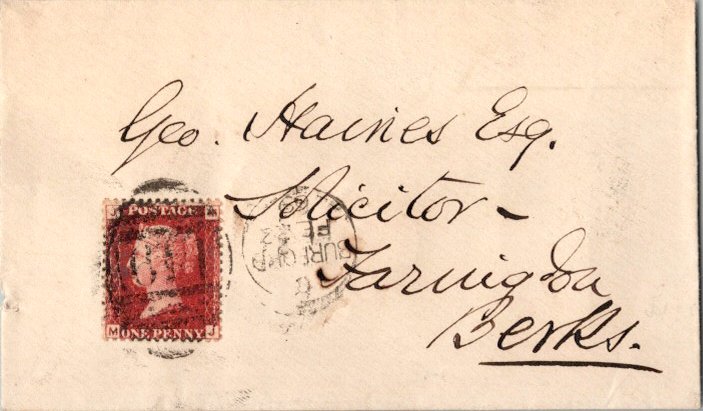 Geo. Haines Esq.
Solicitor -
Faringdon
Berks.
J M
POSTAGE
M J
ONE PENNY
BURFORD